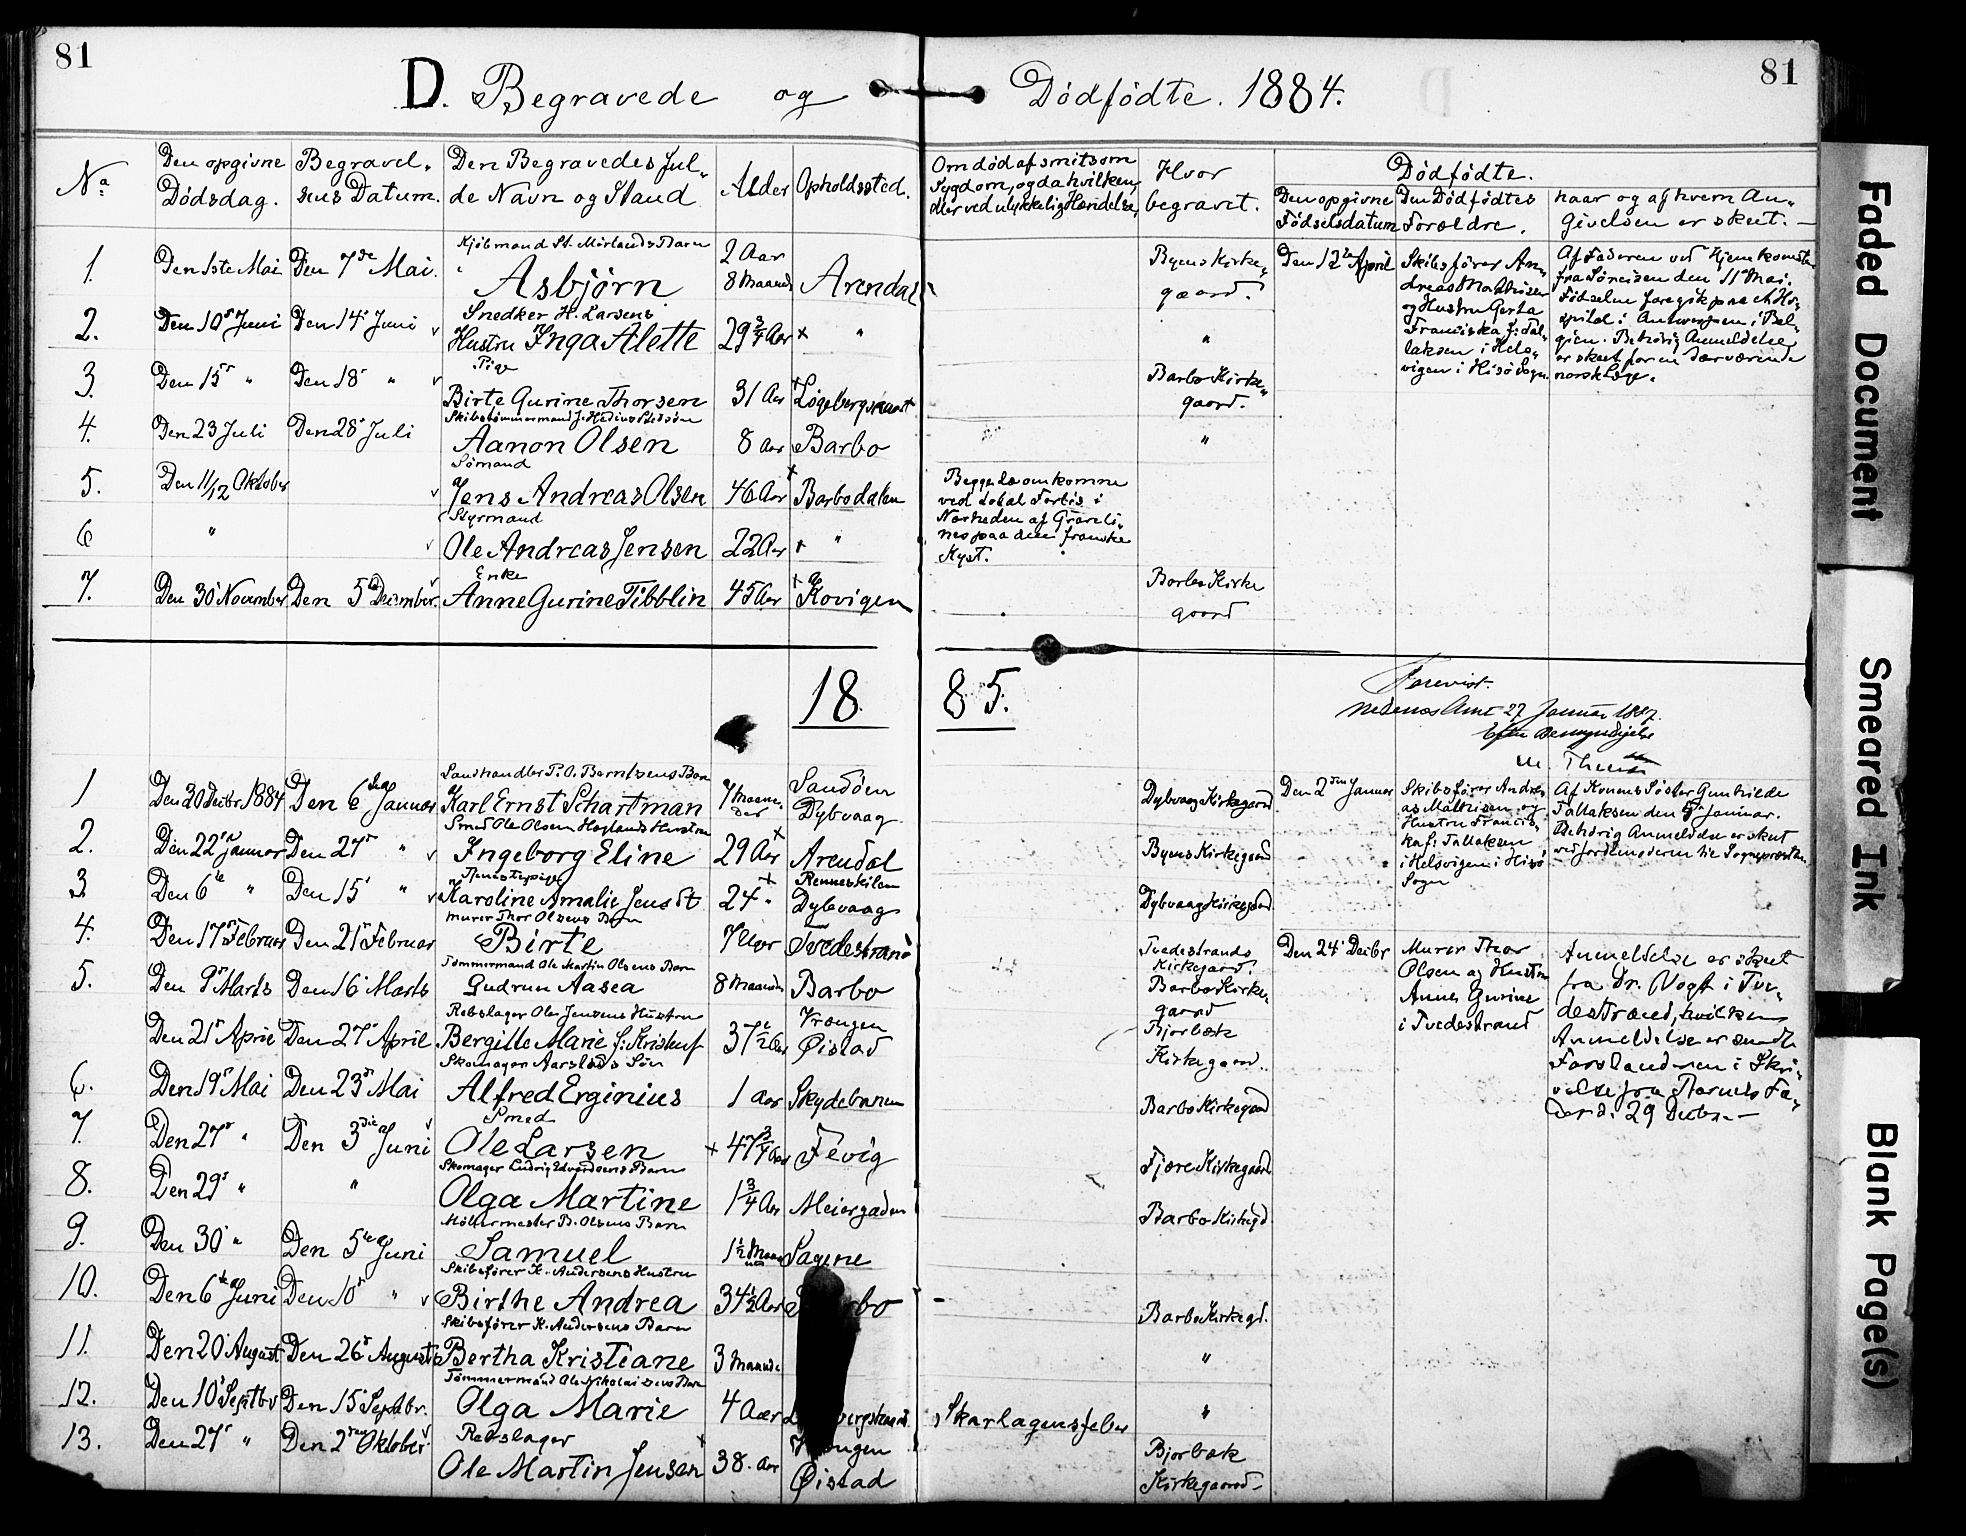 81
81
D. Begravede og Dødfødte. 1884.
No
Den opgivne
Dødsdag.
Begravel-
sens Datum.
Den Begravedes ful-
de Navn og Stand
Alder
Opholdssted.
Om død af smitsom
Sygdom, og da hvilken,
eller ved ulykkelig Hændelse,
Hvor
begravet.
Dødfødte.
Den opgivne
Fødselsdatum
Den Dødfødtes
Forældre.
naar og af hvem An-
givelsen er skeet.
1. Den 1ste Mai Den 7de Mai.
Kjøbmand St. Mørlands Barn
Asbjørn
2 Aar
8 Maaned
Arendal
Byens Kirke-
gaard.
Den 12te April
Skibsfører An-
dreas Mathisen
og Hustru Gerta
Franciska f: Tal-
laksen i Hels-
vigen i Hisø Sogn.
Af Faderen ved Hjemkomsten
fra Søreisen den 11te Mai.
Fødselen foregik paa et Ho-
spital i Antwerpen i Bel-
gien. Behørig Anmeldelse
er skeet for en derværende
norsk Læge.
2. Den 10de Juni Den 14de Juni
Snedker H. Larsens
Hustru Inga Alette
29 3/4 Aar
"
"
3. Den 15de " Den 18de "
Pige
Birte Gurine Thorsen
31 Aar
Barbo Kirke-
gaard.
4. Den 23 Juli Den 28de Juli
Aanon Olsen
8 Aar Barbo
"
5. Den 11/12 Oktober
Sømand
Jens Andreas Olsen
46 Aar Barbodalen
Begge to omkomne
ved total Forlis i
Nærheden af Graveli-
nes paa den franske
Kyst.
6 "
Styrmand
Ole Andreas Jensen
22 Aar "
7. Den 30te November Den 5te December.
Enke
Anne Gurine Tibblin
45 Aar Kovigen
Barbo Kirke
gaard
18 85.
Forevist.
Nedenæs Amt 27 Januar 1887.
Efter Bemyndigelse
1 Den 30 Decbr 1884 Den 6te Januar
Landhandler P. O. Berntsens Barn
Karl Ernst Schartman
7 Maane-
der
Sandøen
Dybvaag
Dybvaag Kirkegaard
Den 2den Januar
Skibsfører Andre-
as Mathisen og
Hustru Francis-
ka f: Tallaksen
i Helsvigen i Hisø
Sogn
Af Konens Søster Gunhilde
Tallaksen den 5te Januar.
Behørig Anmeldelse er skeet
ved Jordemoderen til Sognepræsten.
2. Den 22de Januar Den 27de "
Smed Ole Olsen Høglands Hustru
Ingeborg Eline
29 Aar Arendal
Byens Kirkegaard
3 Den 6te " Den 15de "
Tjenestepige
Karoline Amalie Jensdt
24 "
Dybvaag
Dybvaag Kirkegaard
4. Den 17de Februar Den 21de Februar
Murer Thor Olsens Barn
Birte
7 Aar Tvedestrand
Tvedestrands
Kirkegaard.
Den 24de Decbr
Murer Thor
Olsen og Hustru
Anne Gurine
i Tvedestrand
Anmeldelse er skeet
fra Dr. Vogt i Tve-
destrand, hvilken
Anmeldelse er sendt
Forstanderen i Skri-
velse fra Barnets Fa-
der d. 29 Decbr.
5. Den 9de Marts Den 16de Marts
Tømmermand Ole Martin Olsens Barn
Gudrun Aasea
8 Maaneder Barbo
Barbo Kirke-
gaard
Den 21de April Den 27de April
Rebslager Ole Jensens Hustru
Bergitte Marie f: Kristensf
37 1/2 Aar
Vrængen
Øistad
Bjorbæk
Kirkegaard.
6. Den 19de Mai Den 23de Mai
Skomager Aarslads Søn
Alfred Erginius
1 Aar Skydebanen
Barbo Kirkegaard
7. Den 27de " Den 3die Juni
Smed
Ole Larsen
47 3/4 Aar Fevig
Fjære Kirkegaard
8. Den 29de " "
Skomager Ludvig Edvardsens Barn
Olga Martine
1 3/4 Aar Meiergaden
Barbo Kirkegd
9. Den 30te " Den 5te Juni
Møllermester B. Olsens Barn
Samuel
1 1/2 Maaned Sagene
10. Den 6te Juni Den 10de "
Skibsfører K. Andersens Hustru
Birthe Andrea
34 1/2 Aar
Barbo Kirkegd.
11. Den 20de August Den 26de August
Skibsfører K. Andersens Barn
Bertha Kristiane
3 Maaneder
"
12. Den 10de Septbr Den 15de Septbr.
Tømmermand Ole Nikolaisens Barn
Olga Marie
4 Aar
Skarlagensfeber
"
13. Den 27de " Den 2den Oktober
Rebslager
Ole Martin Jensen
38. Aar
Øistad
Bjorbæk
Kirkegaard.
Faded Document
Smeared Ink
Blank Page(s)